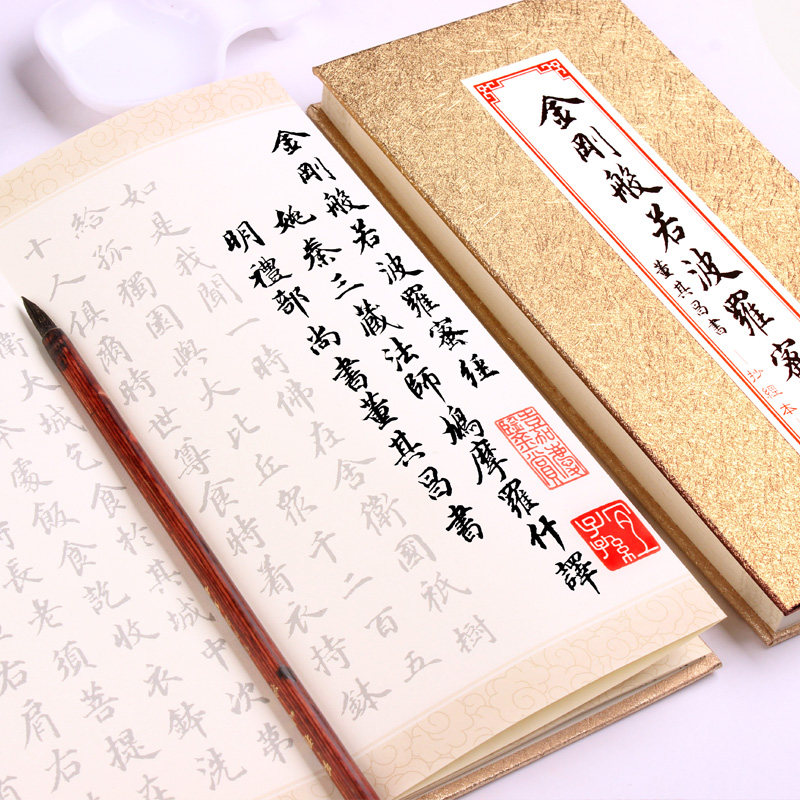 金剛般若波羅蜜
董其昌書
抄經本
金剛般若波羅蜜經
姚秦三藏法師鳩摩羅什譯
明禮部尚書董其昌書
如是我聞一時佛在舍衛國祇樹
給孤獨園與大比丘眾千二百五
十人俱爾時世尊食時著衣持鉢
衛大城乞食於其城中次第
本處飯食訖收衣鉢洗
時長老須菩提在
右肩右